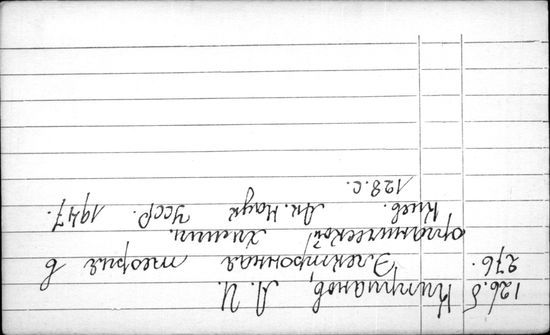 126.5 Киприанов, А. И.
276. Электронная теория в
органической химии.
Киев. Ак. Наук УССР. 1947.
128 с.